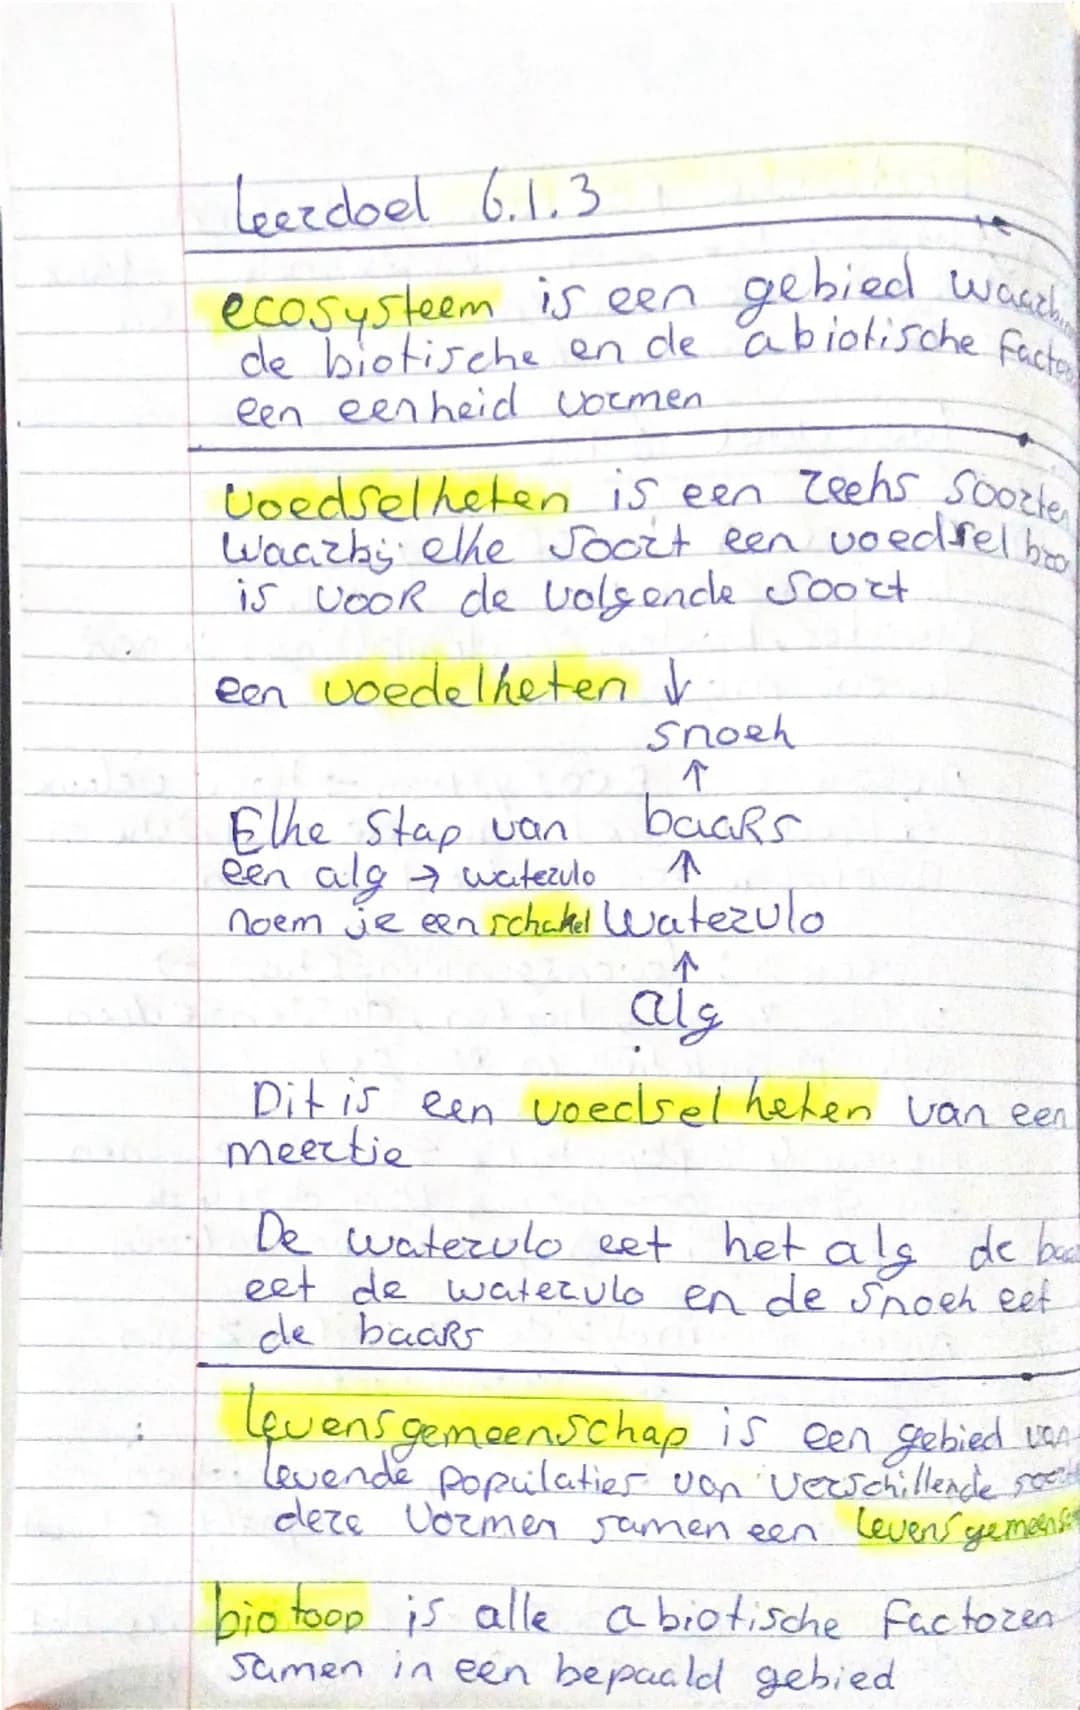 Leerdoel 6.1.3
ecosysteem is een gebied
de biotische en de abiotische
een eenheid vormen
voedselketen is een reeks soorten
waarbij elke soort een voedsel
is voor de volgende soort
een voedelketen ↓
snoek
↑
Elke stap van baars
een alg → watervlo ↑
noem je een schakel watervlo
↑
alg
Dit is een voedselketen van een
meertje
De watervlo eet het alg de
eet de watervlo en de snoek eet
de baars
levensgemeenschap is een gebied van
levende populaties van verschillende
deze vormen samen een
biotoop is alle abiotische factoren
samen in een bepaald gebied